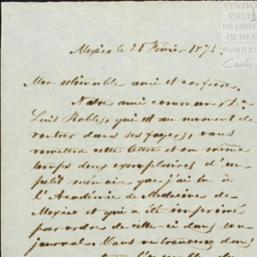 CENTRO
ESTUD
DE HISTO
DE MEX
FUNDAC
Carlos
Mexico le 28 Février 187
Mon estimable ami et confrère,
Notre ami commun
Luis Robles, qui est au moment de
rentrer dans ses foyers, vous
remettra cette lettre et en même
temps deux exemplaires d'un
petit mémoire que j'ai lu à
l'Académie de Médecine de
Mexico et qui a été imprimé
par ordre de celle-ci dans son
journal. Vous